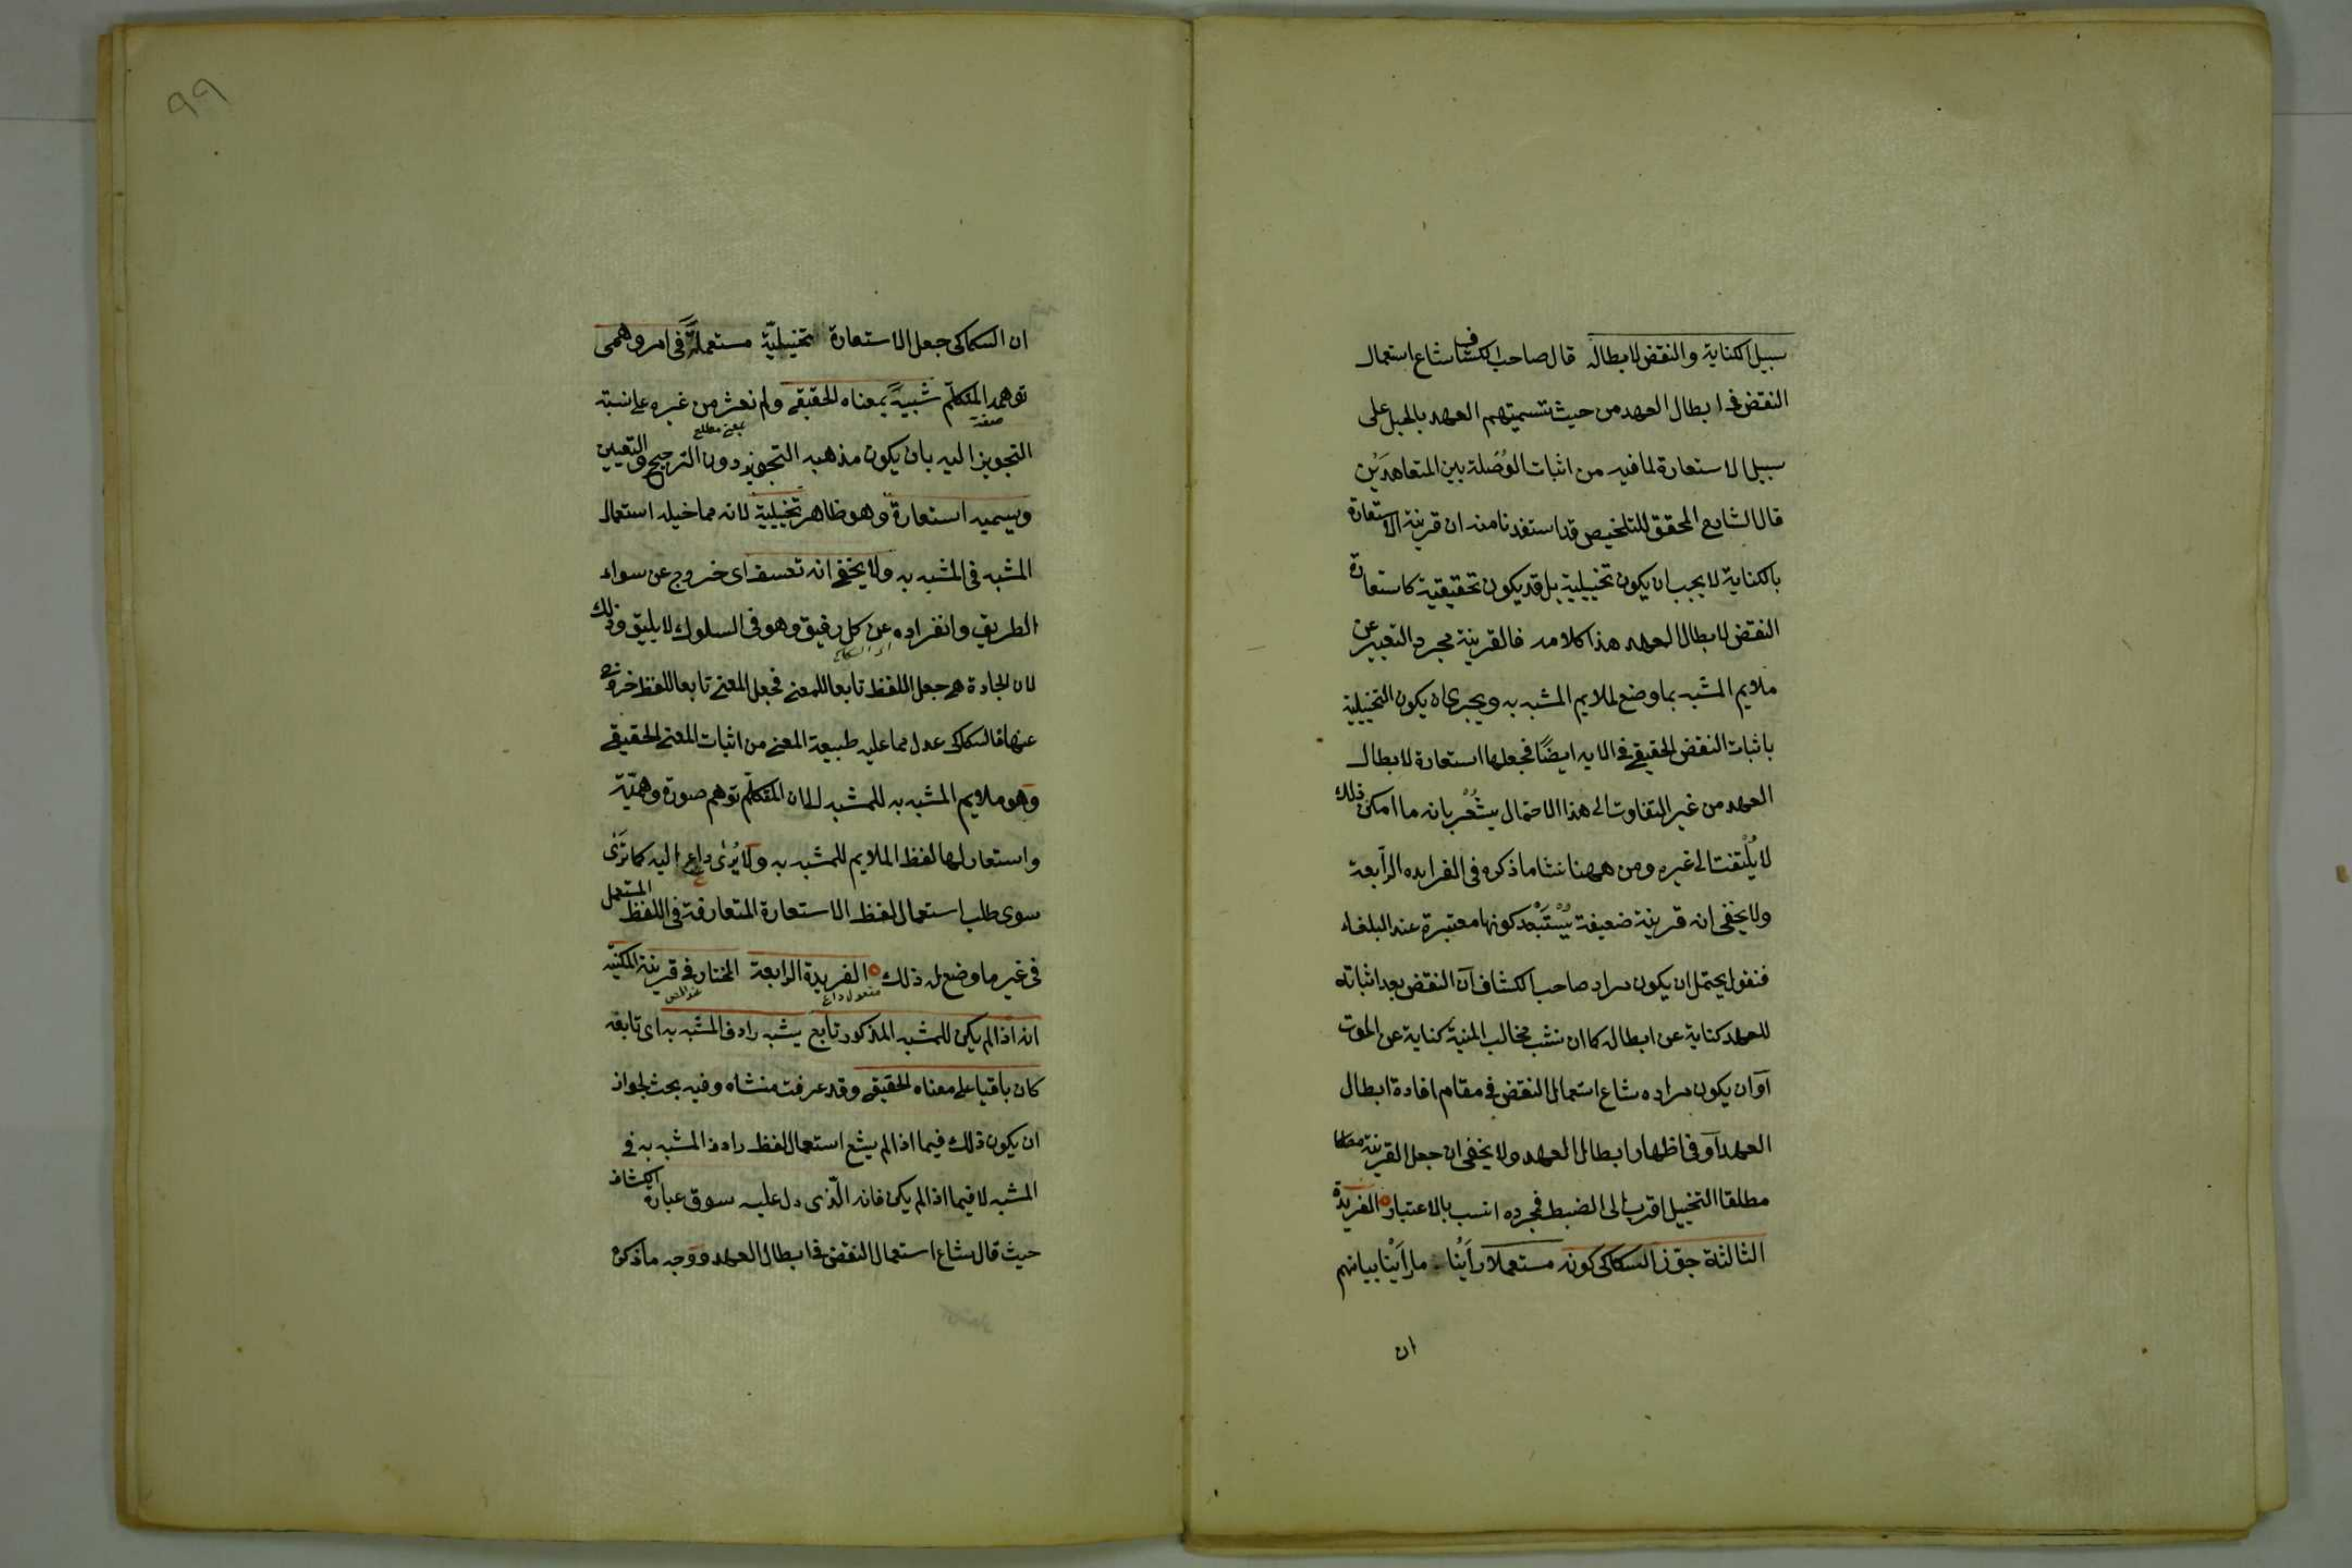 سبيل الكناية والنقض لابطاله قال صاحب الكشاف شاع استعمال
النقض في ابطال العهد من حيث تسميتهم العهد بالحبل على
سبيل الاستعارة لما فيه من اثبات الوُصَلة بين المتعاهدَيْن
قال الشارح المحقق للتلخيص قد استفدنا منه ان قرينة الاستعارة
بالكناية لا يجب ان يكون تخييلية بل قد يكون تحقيقية كاستعارة
النقض لابطال العهد هذا كلامه فالقرينة مجرد التعبير عن
ملايم المشبه بما وضع لملايم المشبه به ويجري ان يكون التخييلية
باثبات النقض الحقيقي في الايه ايضًا فجعلها استعارة لابطال
العهد من غير التفاوت الى هذا الاحتمال يشْعُر بانه ما امكن ذلك
لا يُلْتفت الى غيره ومن ههنا نشا ما ذكره في الفرايده الرّابعة
ولا يخفى انه قرينة ضعيفة يُسْتَبْعد كونها معتبرة عند البلغاء
فنقول يحتمل ان يكون مراد صاحب الكشاف ان النقض بعد اثباته
للعهد كناية عن ابطاله كما ان نشب مخالب المنية كناية عن الموت
او ان يكون مراده شاع استعمال النقض في مقام افادة ابطال
العهد او في اظهار ابطال العهد ولا يخفى ان جعل القرينة مطلقا
مطلقا التخييل اقرب الى الضبط فجرده انسب بالاعتبار الفريدة
الثالثة جوّز السكاكى كونه مستعملا رأيْنا ما رأيْنا بيانهم
ان
٩٩
ان السكاكى جعل الاستعارة تخييليّة مستعملةً في امر وهمى
توهمه المتكلّم شبيهًا بمعناه الحقيقي ولم نعثر من غيره على نسبة
صفة
بمعنى مطلع
التجويز اليه بان يكون مذهبه التجويز دون الترجيح والتعيين
ويسميه استعارة وهو ظاهر تخييلية لانه مما خيله استعمال
المشبه في المشبه به ولا يخفى انه تعسف اى خروج عن سواء
الطريق وانفراده عن كل رفيق وهو في السلوك لا يليق وذلك
اى السكاكى
لان الجادة هي جعل اللفظ تابعا للمعنى فجعل المعنى تابعا للفظ خروج
عنها فالسكاكى عدل مما عليه طبيعة المعنى من اثبات المعنى الحقيقي
وهو ملايم المشبه به للمشبه الى ان المتكلّم توهم صورة وهميّة
واستعار لها لفظ الملايم للمشبه به ولا يُرى داع اليه كما ترى
سوى طلب استعمال لفظ الاستعارة المتعارفة في اللفظ المستعمل
في غير ما وضع له ذلك الفريدة الرابعة المختار في قرينة المكنيّه
انه اذا لم يكن للمشبه المذكور تابع يشبه رادف المشبه به اى تابعه
كان باقيا على معناه الحقيقي وقد عرفت منشاه وفيه بحث لجواز
ان يكون ذلك فيما اذا لم يشع استعمال لفظ رادف المشبه به في
المشبه لا فيما اذا لم يكن فانه الّذى دل عليه سوق عبارة الكشاف
حيث قال شاع استعمال النقض في ابطال العهد ووجه ما ذكره